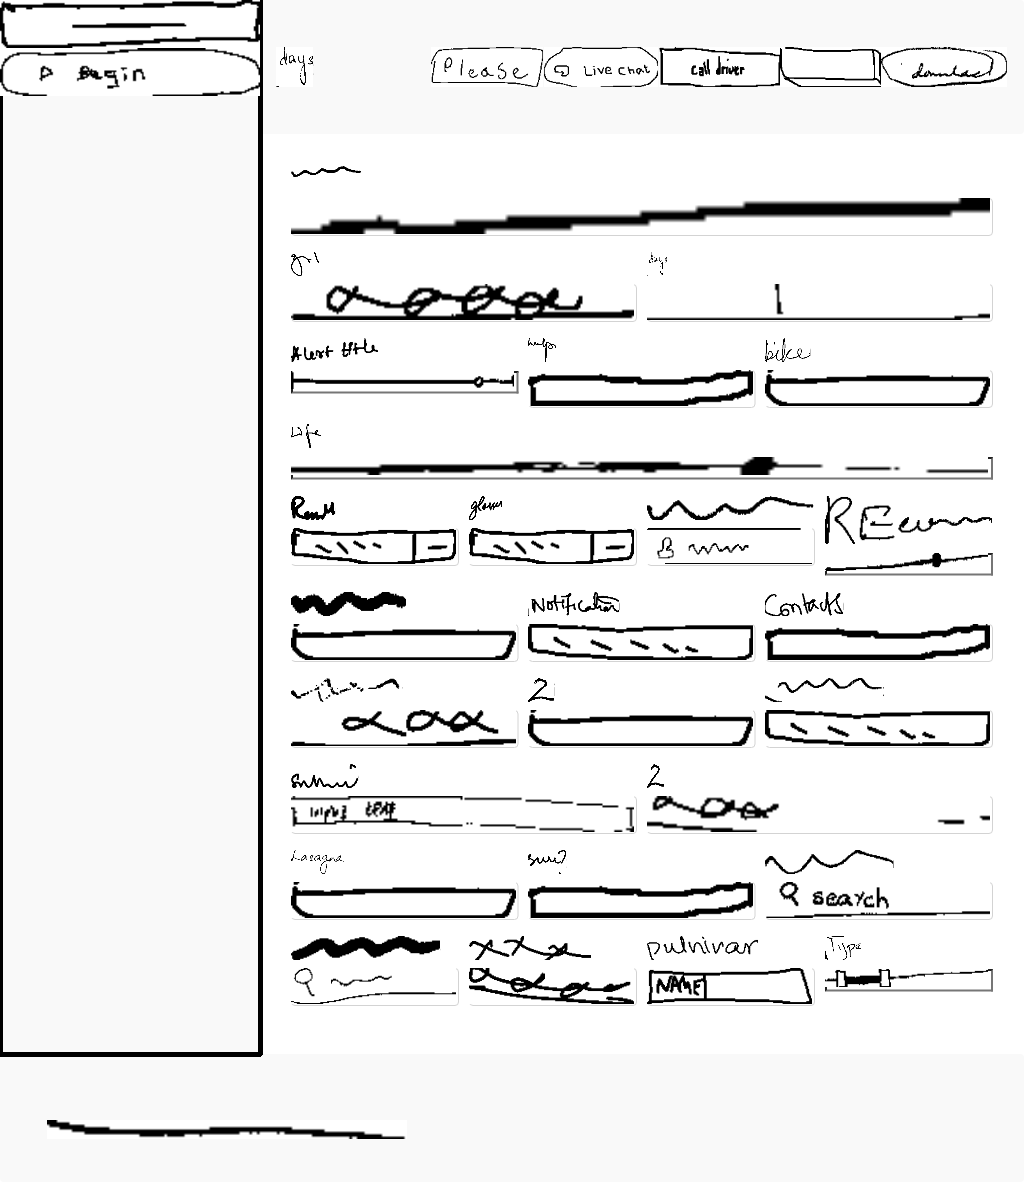 Begin
days
Please
Live chat
call driver
download
days
Alert title
helps
bike
Life
Result
glasses
Notification
Contacts
2
Submit
2
input text
Lasagna
search
xxx
pulvinar
Type
NAME